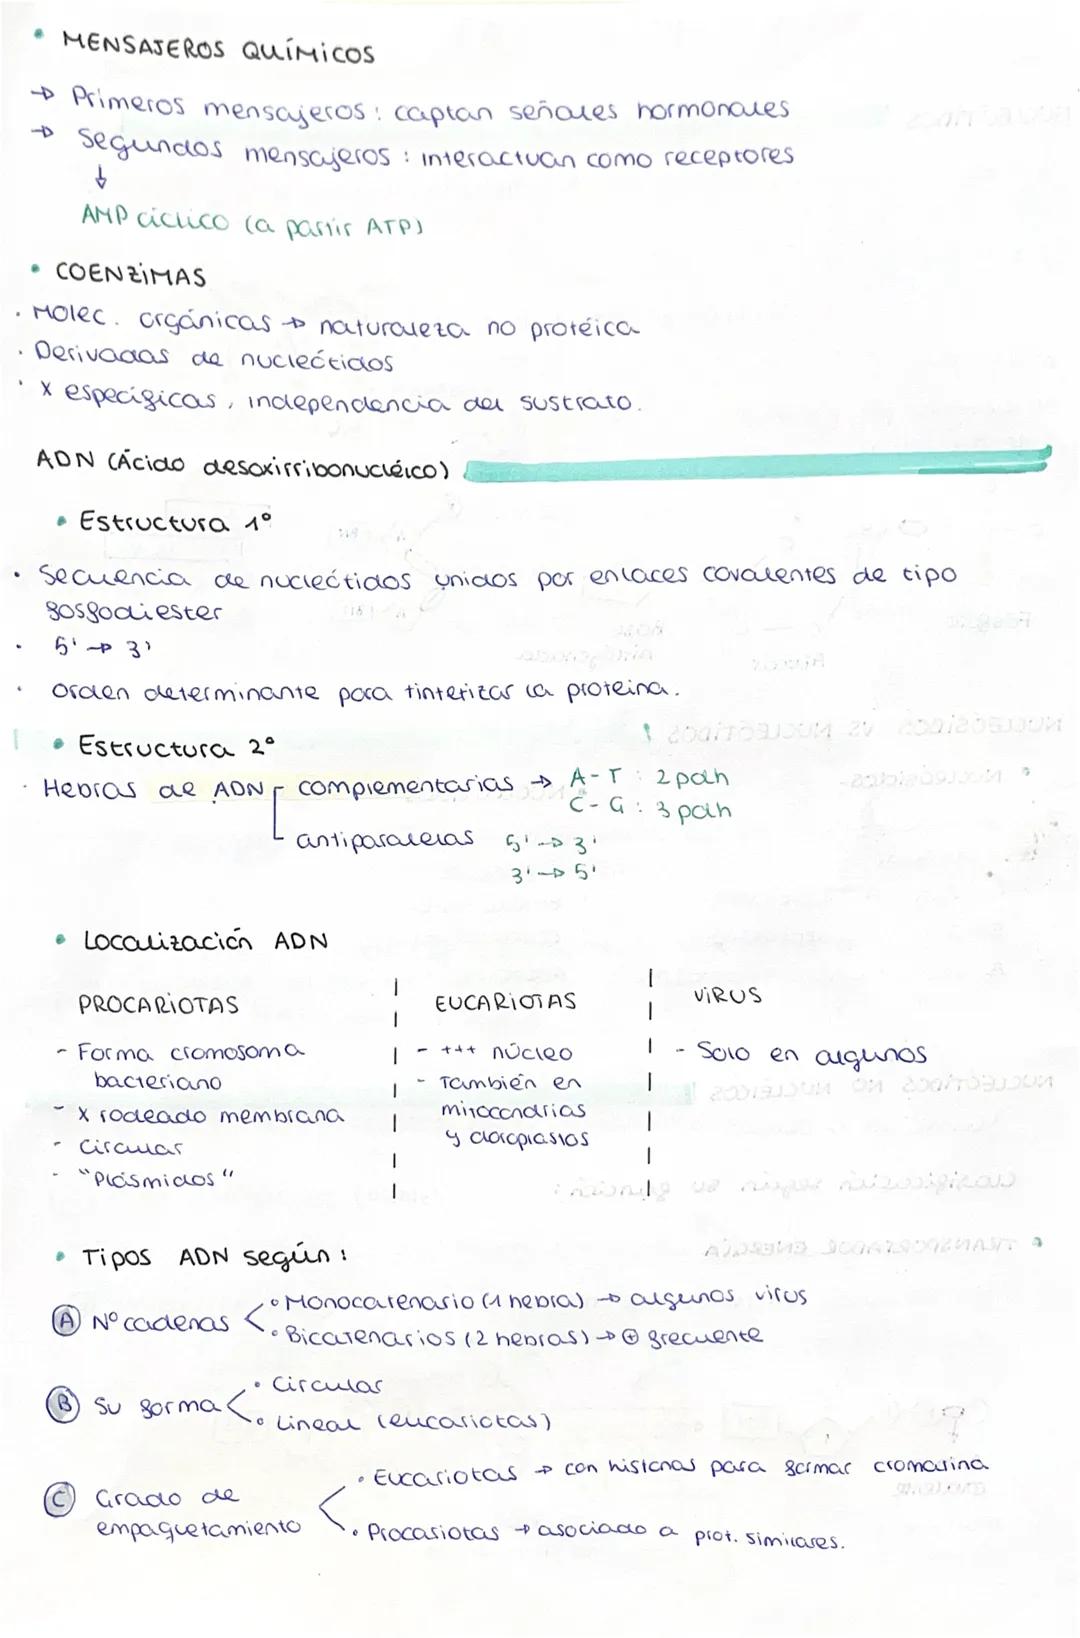 • MENSAJEROS QUÍMICOS
→ Primeros mensajeros: captan señales hormonales
→ Segundos mensajeros: interactuan como receptores
↓
AMP cíclico (a partir ATP)
• COENZIMAS
· Molec. orgánicas → naturaleza no protéica
· Derivadas de nucleótidos
· X específicas, independencia del sustrato.
ADN (Ácido desoxirribonucléico)
• Estructura 1º
· Secuencia de nucleótidos unidos por enlaces covalentes de tipo
fosfodiester
· 5' → 3'
· Orden determinante para tintetizar la proteina.
• Estructura 2º
· Hebras de ADN complementarias → A-T: 2 pdh
C-G: 3 pdh
antiparalelas 5' → 3'
3' → 5'
• Localización ADN
PROCARIOTAS
- Forma cromosoma
bacteriano
- X rodeado membrana
- Circular
- "Plásmidos"
EUCARIOTAS
- +++ núcleo
- También en
mitocondrias
y cloroplastos
VIRUS
- Solo en algunos
• Tipos ADN según:
A Nº cadenas
• Monocatenario (1 hebra) → algunos virus
• Bicatenarios (2 hebras) → ⊕ frecuente
B Su forma
• Circular
• Lineal (eucariotas)
C Grado de
empaquetamiento
• Eucariotas → con histonas para formar cromatina
• Procariotas → asociado a prot. similares.